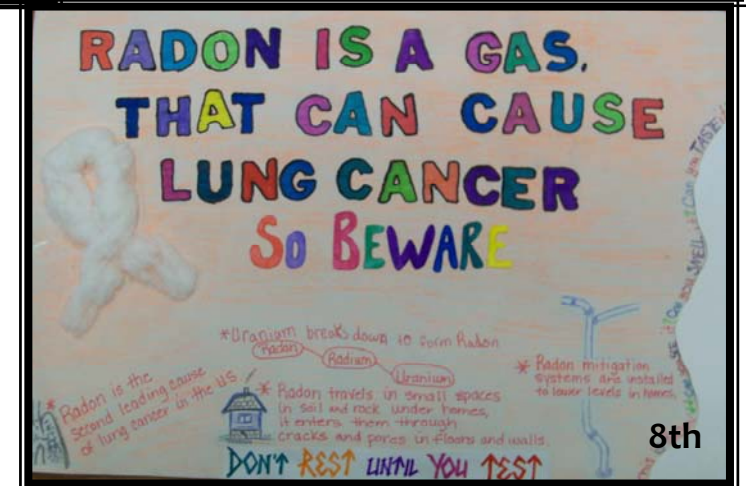 RADON IS A GAS.
THAT CAN CAUSE
LUNG CANCER
SO BEWARE
*Uranium breaks down to form Radon
Radon
Radium
Uranium
* Radon is the
second leading cause
of lung cancer in the US
* Radon travels in small spaces
in soil and rock under homes,
it enters them through
cracks and pores in floors and walls.
* Radon mitigation
systems are installed
to lower levels in homes,
SEE it? Can you SMELL it? Can you TASTE it
DON'T REST UNTIL YOU TEST
8th